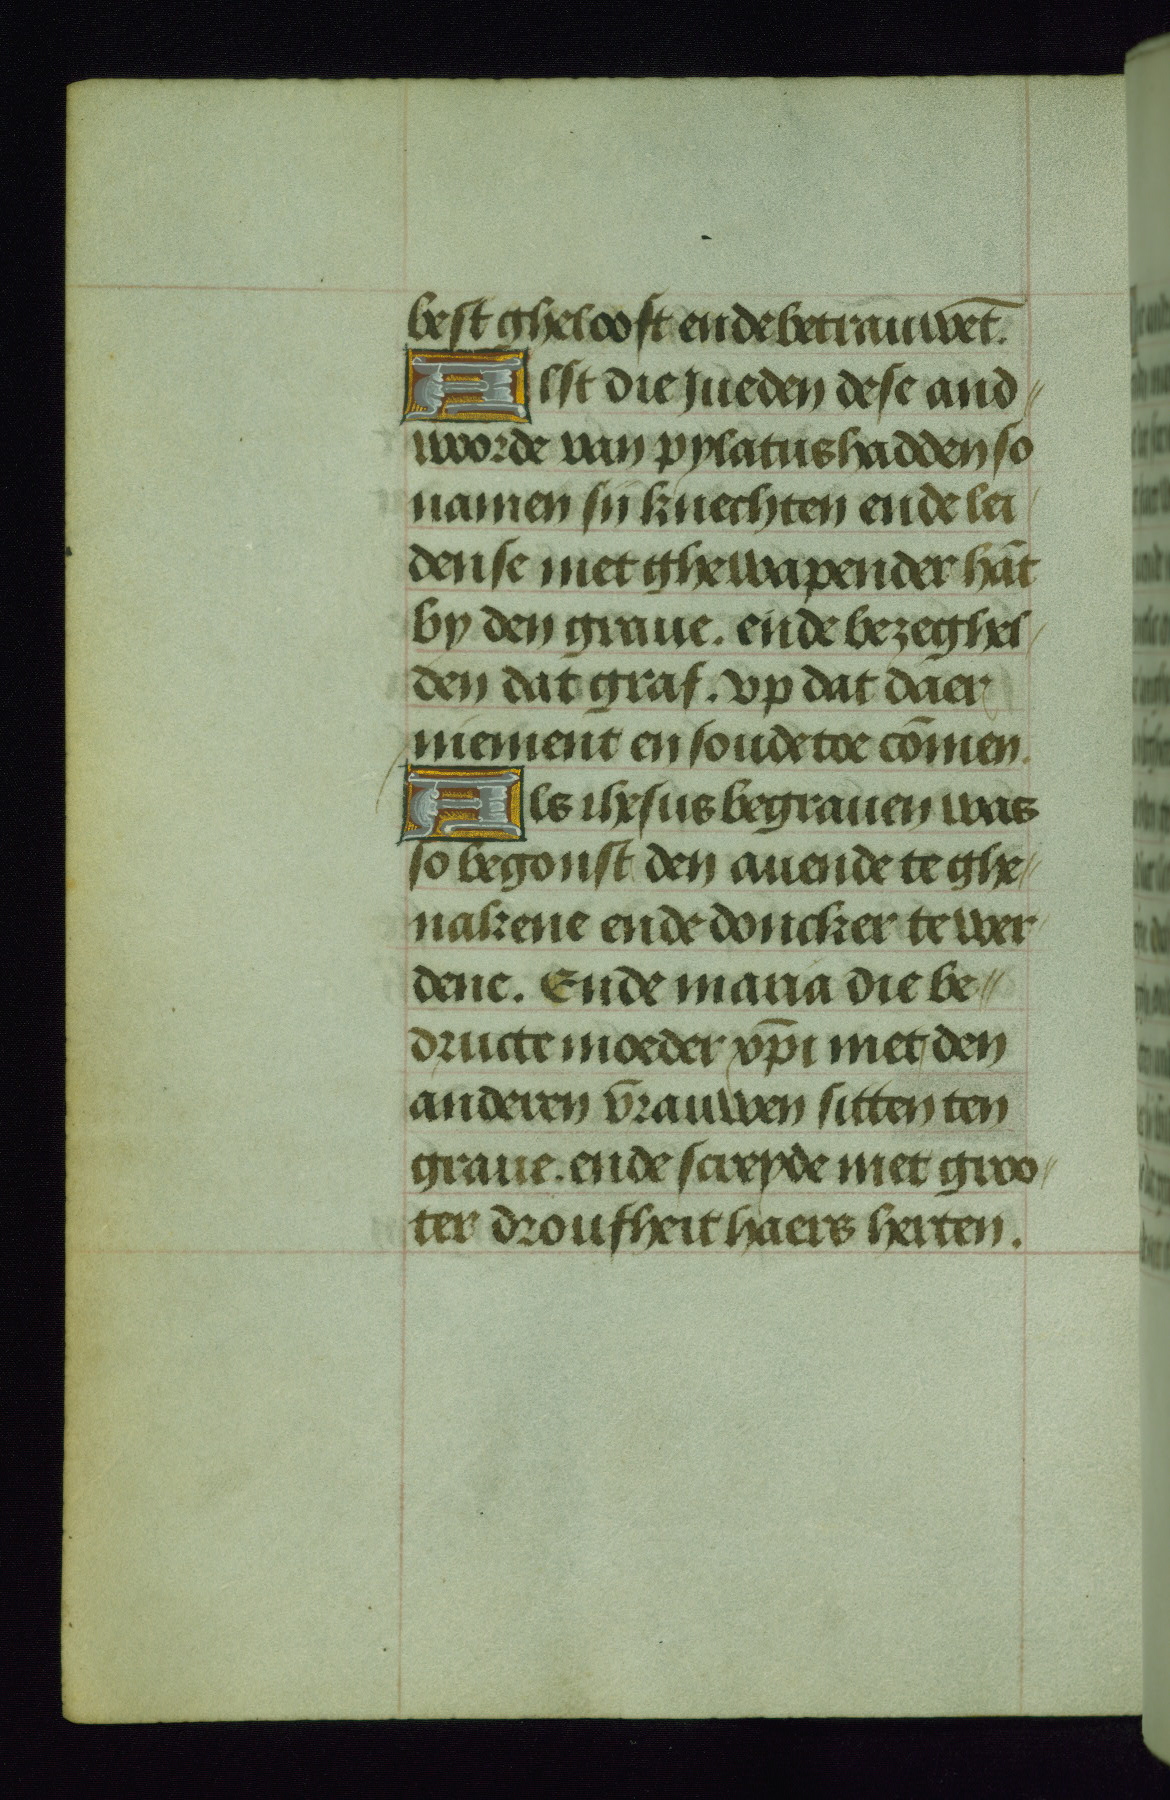 best ghelooft ende betrauwet̄.
Alst die Jueden dese and//
woorde van pylatus hadden so
namen sij knechten ende lei/
dense met ghewapender hāt
by den graue. ende bezeghel/
den dat graf. vp dat daer
niement en soude toe cōmen.
Als ihesus begrauen was
so begonst den auende te ghe//
nakene ende doncker te wer/
dene. Ende maria die be//
dructe moeder xp̄i met den
anderen v̄rauwen sitten ten
graue. ende screyde met groo//
ter droufheit haers herten.